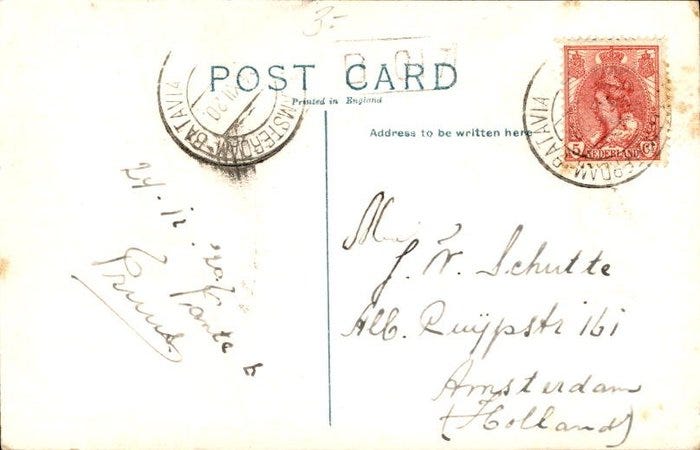 3-
POST CARD
Printed in England
AMSTERDAM-BATAVIA
XII.20
Address to be written here
5 Ct
NEDERLAND
AMSTERDAM-BATAVIA
24.12.
Tante
J. W. Schutte
Alb. Cuijpstr 161
Amsterdam
(Holland)